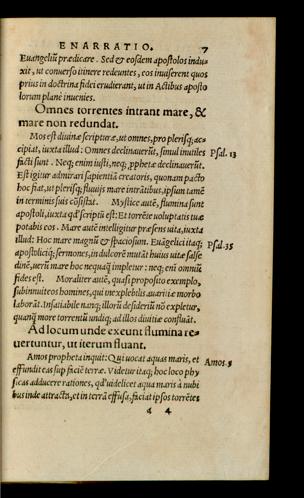 ENARRATIO. 7
Euangeliũ prædicare. Sed & eosdem apostolos indu-
xit, ut conuerso itinere redeuntes, eos inuiserent quos
prius in doctrina fidei erudierant, ut in Actibus aposto
lorum plane inuenies.
Omnes torrentes intrant mare, &
mare non redundat.
Mos est diuinæ scripturæ, ut omnes, pro plerisq; ac-
cipiat, iuxta illud: Omnes declinauerũt, simul inutiles Psal. 13
facti sunt. Neq; enim iusti, neq; ꝓphetæ declinauerũt.
Est igitur admirari sapientiã creatoris, quonam pacto
hoc fiat, ut plerisq; fluuijs mare intrãtibus, ipsum tamẽ
in terminis suis cõsistat. Mystice autẽ, flumina sunt
apostoli, iuxta qđ scriptũ est: Et torrẽte uoluptatis tuæ
potabis eos. Mare autẽ intelligitur præsens uita, iuxta
illud: Hoc mare magnũ & spaciosum. Euãgelici itaq; Psal. 35
apostoliciq; sermones, in dulcorẽ mutãt huius uitæ salse
dinẽ, uerũ mare hoc nequaq̃ impletur: neq; eni omniũ
fides est. Moraliter autẽ, quasi proposito exemplo,
subinnuit eos homines, qui inexplebilis auaritiæ morbo
laborãt. Insatiabile nanq; illorũ desideriũ nõ expletur,
quanq̃ more torrentiũ undiq; ad illos diuitiæ confluãt.
Ad locum unde exeunt flumina re-
uertuntur, ut iterum fluant.
Amos propheta inquit: Qui uocat aquas maris, et Amos. 5
effundit eas sup faciẽ terræ. Videtur itaq; hoc loco phy
sicas adducere rationes, qđ uidelicet aqua maris à nubi
bus inde attracta, et in terrã effusa, faciat ipsos torrẽtes
d 4